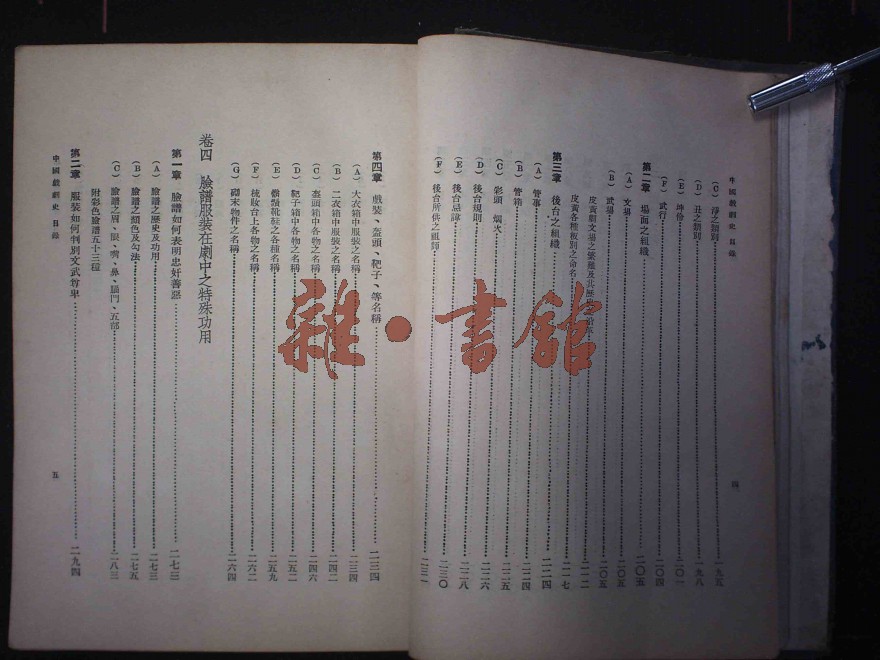 中國戲劇史 目錄
(C) 淨之類別……一九五
(D) 丑之類別……一九八
(E) 坤伶……二〇一
(F) 武行……二〇四
第二章 場面之組織……二〇五
(A) 文場……二〇五
(B) 武場……二〇五
皮黃劇文場之繁難及其歷
皮黃各種板別之命名……二一七
第三章 後台之組織……二二四
(A) 管事……二二四
(B) 管箱……二二四
(C) 彩頭、烟火……二二五
(D) 後台規則……二二六
(E) 後台忌諱……二二八
(F) 後台所供之祖師……二三〇
四
第四章 戲裝、盔頭、靶子、等名稱……二三四
(A) 大衣箱中服裝之名稱……二三四
(B) 二衣箱中服裝之名稱……二四二
(C) 盔頭箱中各物之名稱……二四六
(D) 靶子箱中各物之名稱……二五二
(E) 髯鬚靴鞋之各種名稱……二五九
(F) 梳妝台上各物之名稱……二六二
(G) 砌末物件之名稱……二六四
卷四 臉譜服裝在劇中之特殊功用
第一章 臉譜如何表明忠奸善惡……二七三
(A) 臉譜之歷史及功用……二七三
(B) 臉譜之顏色及勾法……二七五
(C) 臉譜之眉、眼、嘴、鼻、腦門、五部……二八三
附彩色臉譜五十三種
第二章 服裝如何判別文武尊卑……二九四
中國戲劇史 目錄
五
雜·書館